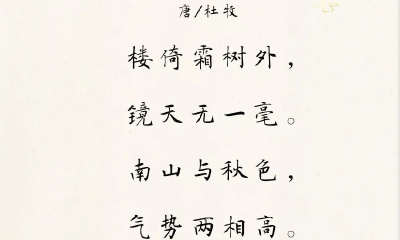 唐/杜牧
楼倚霜树外，
镜天无一毫。
南山与秋色，
气势两相高。